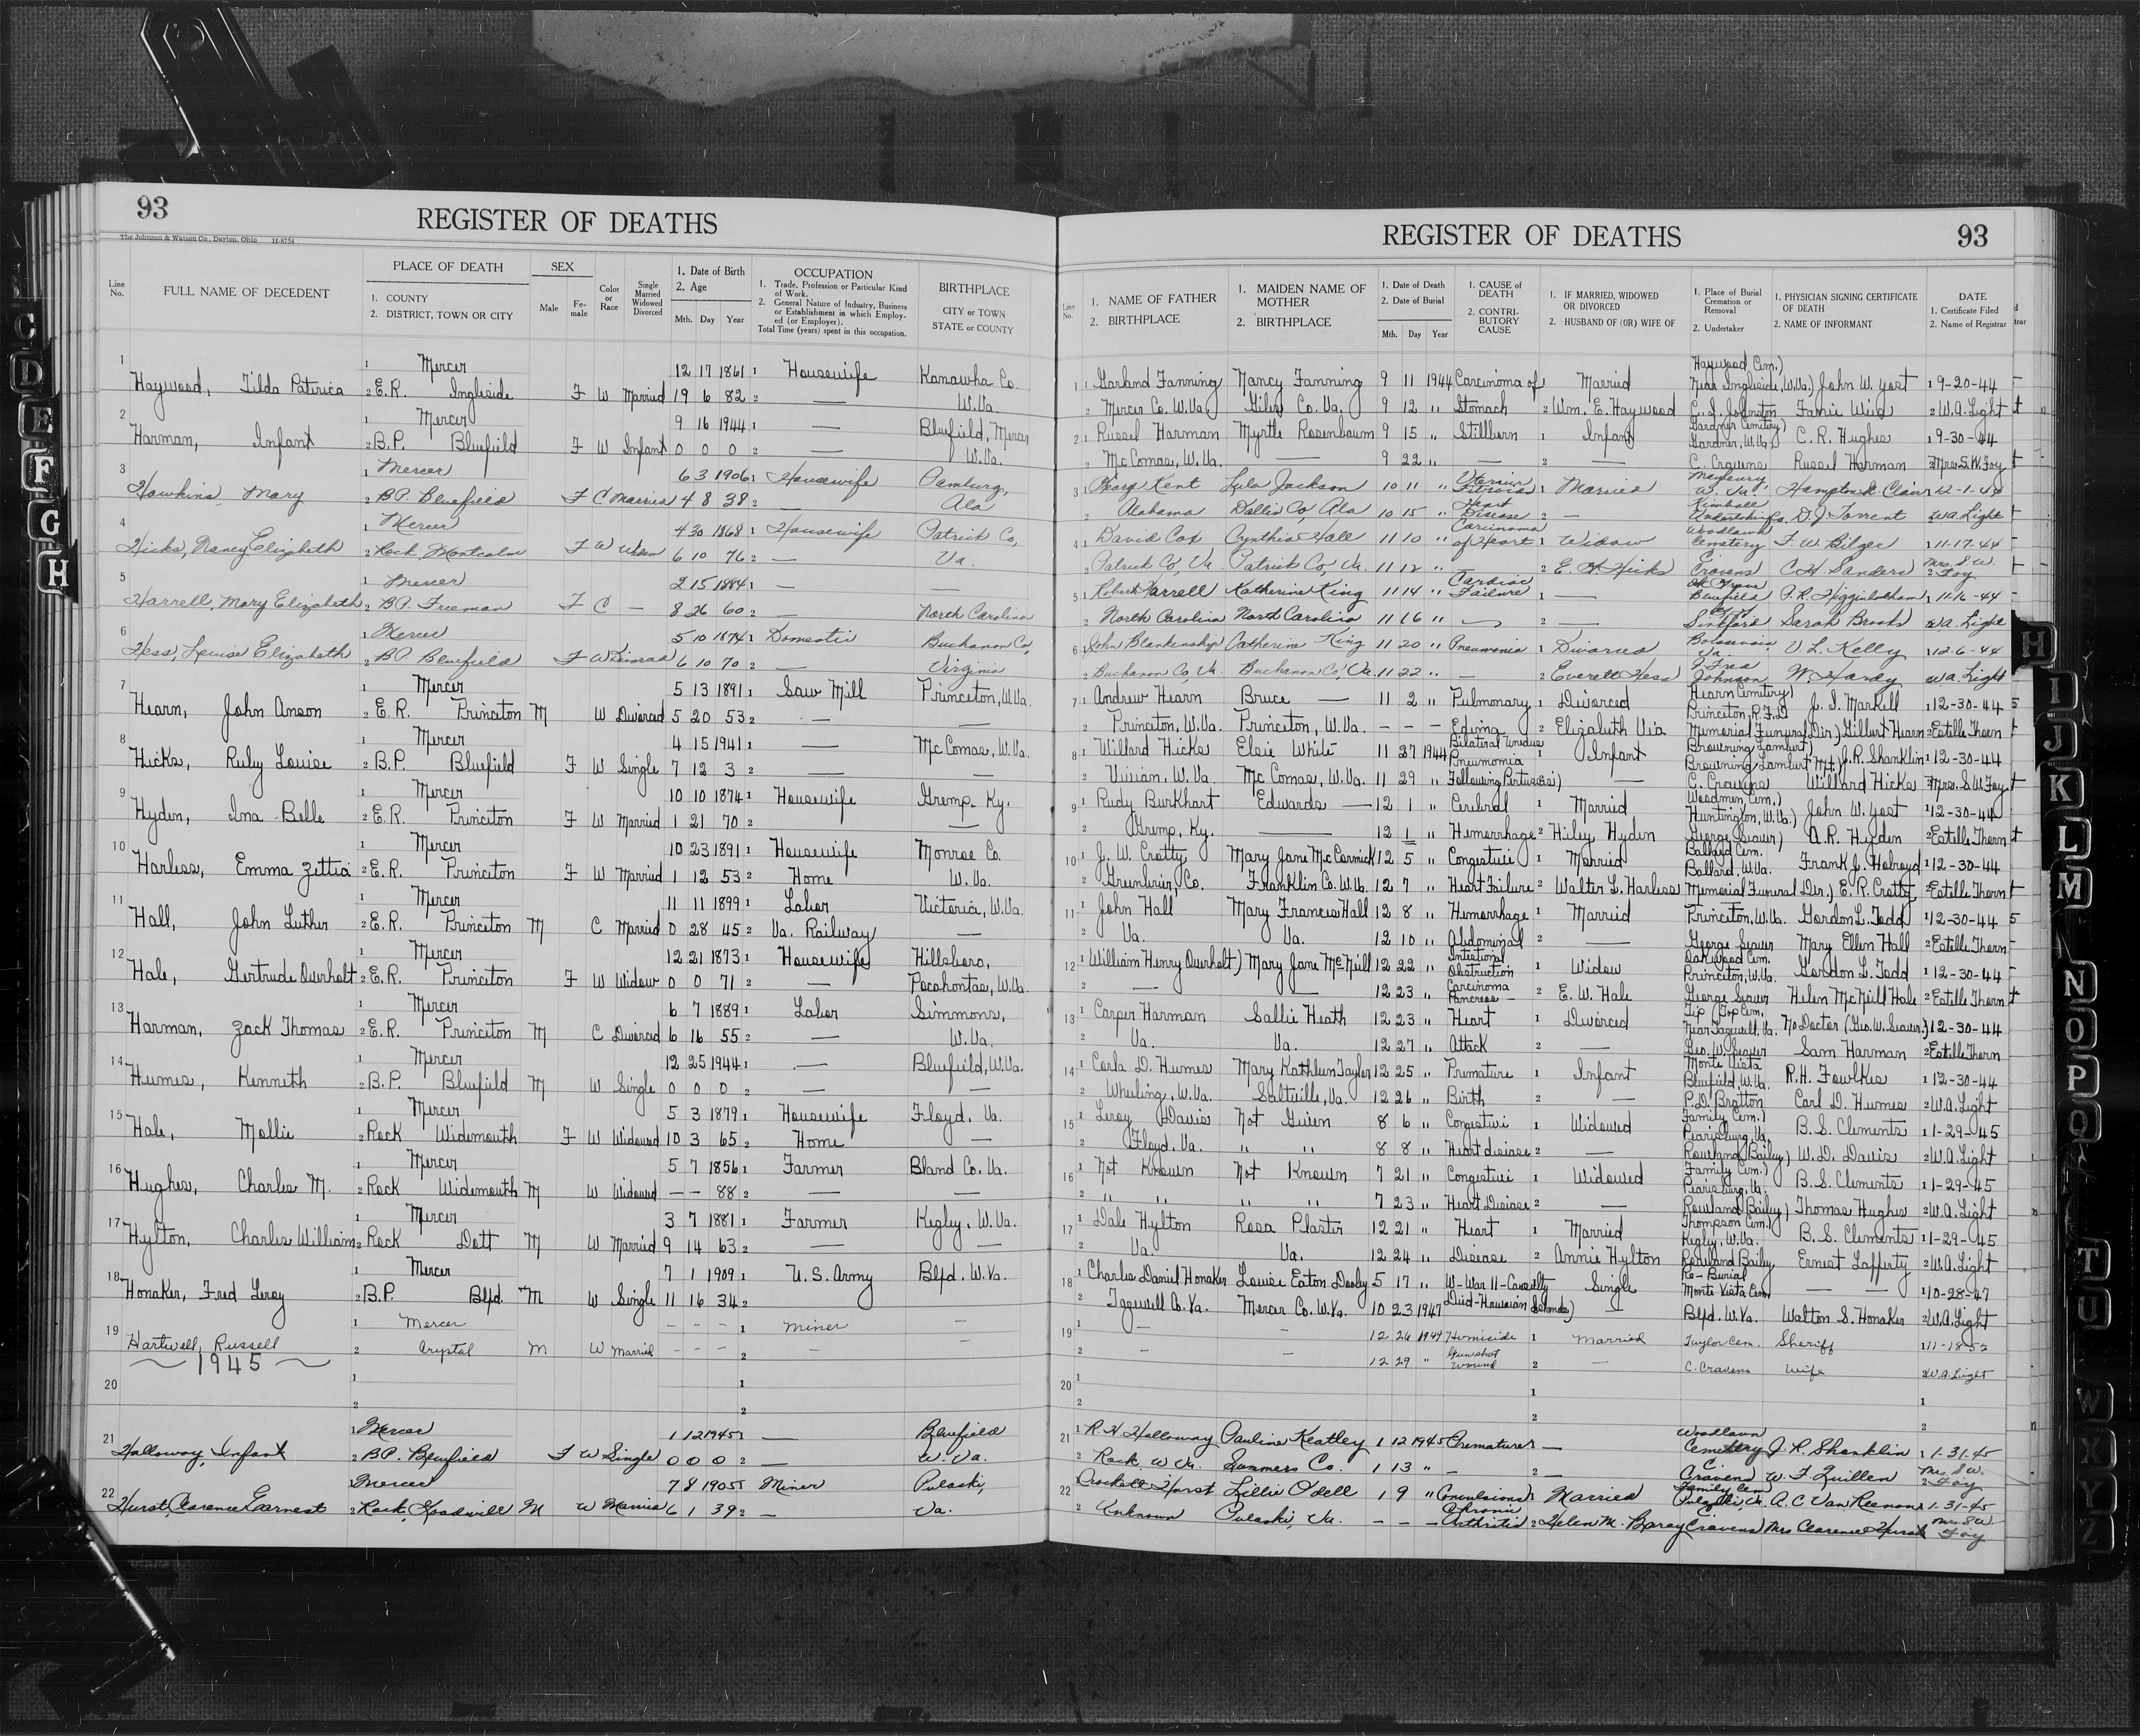 93
REGISTER OF DEATHS
The Johnson & Watson Co., Dayton, Ohio H-8754
Line No.
FULL NAME OF DECEDENT
PLACE OF DEATH
1. COUNTY
2. DISTRICT, TOWN OR CITY
SEX
Male
Fe-male
Color or Race
Single Married Widowed Divorced
1. Date of Birth
2. Age
Mth. Day Year
OCCUPATION
1. Trade, Profession or Particular Kind of Work.
2. General Nature of Industry, Business or Establishment in which Employed (or Employer).
Total Time (years) spent in this occupation.
BIRTHPLACE
CITY or TOWN
STATE or COUNTY
1 1 Mercer 12 17 1861 1 Housewife Kanawha Co.
Haywood, Tilda Patirica 2 E.R. Ingleside F W Married 19 6 82 2 — W.Va.
2 1 Mercer 9 16 1944 1 — Bluefield, Mercer
Harman, Infant 2 B.P. Bluefield F W Infant 0 0 0 2 — W.Va.
3 1 Mercer 6 3 1906 1 Housewife
Hawkins, Mary 2 B.P. Bluefield F C Married 4 8 38 2 — Ala
4 1 Mercer 4 30 1868 1 Housewife Patrick Co,
Hicks, Nancy Elizabeth 2 Rock Montcalm F W Widow 6 10 76 2 — Va.
5 1 Mercer 2 15 1884 1 — —
Harrell, Mary Elizabeth 2 B.P. Freeman F C — 8 26 60 2 North Carolina
6 1 Mercer 5 10 1874 1 Domestic Buchanon Co,
Hess, Louise Elizabeth 2 B.P. Bluefield F W Divorced 6 10 70 2 — Virginia
7 1 Mercer 5 13 1891 1 Saw Mill Princeton, W.Va.
Hearn, John Anson 2 E.R. Princeton M W Divorced 5 20 53 2 — —
8 1 Mercer 4 15 1941 1 — McComas, W.Va.
Hicks, Ruby Louise 2 B.P. Bluefield F W Single 7 12 3 2 — —
9 1 Mercer 10 10 1874 1 Housewife Gremp, Ky.
Hyden, Ina Belle 2 E.R. Princeton F W Married 1 21 70 2 —
10 1 Mercer 10 23 1891 1 Housewife Monroe Co.
Harless, Emma Zettia 2 E.R. Princeton F W Married 1 12 53 2 Home W.Va.
11 1 Mercer 11 11 1899 1 Labor Victoria, W.Va.
Hall, John Luther 2 E.R. Princeton M C Married 0 28 45 2 Va. Railway —
12 1 Mercer 12 21 1873 1 Housewife Hillsboro,
Hale, Gertrude Overholt 2 E.R. Princeton F W Widow 0 0 71 2 — Pocahontas, W.Va.
13 1 Mercer 6 7 1889 1 Labor Simmons,
Harman, Zack Thomas 2 E.R. Princeton M C Divorced 6 16 55 2 — W.Va.
14 1 Mercer 12 25 1944 1 — Bluefield, W.Va.
Humes, Kenneth 2 B.P. Bluefield M W Single 0 0 0 2 — —
15 1 Mercer 5 3 1879 1 Housewife Floyd, Va.
Hale, Mollie 2 Rock Widemouth F W Widowed 10 3 65 2 Home —
16 1 Mercer 5 7 1856 1 Farmer Bland Co. Va.
Hughes, Charles M. 2 Rock Widemouth M W Widowed — — 88 2 — —
17 1 Mercer 3 7 1881 1 Farmer Kegley, W.Va.
Hylton, Charles William 2 Rock Dott M W Married 9 14 63 2 — —
18 1 Mercer 7 1 1909 1 U.S. Army Blfd. W.Va.
Honaker, Fred Leroy 2 B.P. Blfd. M W Single 11 16 34 2
19 1 Mercer - - - 1 Miner —
Hartwell, Russell 2 Crystal M W Married - - - 2 — —
1945
20 1 1
2 2
21 1 Mercer 1 12 1945 1 — Bluefield
Holloway, Infant 2 B.P. Bluefield F W Single 0 0 0 2 — W.Va.
22 Mercer 7 8 1905 1 Miner Pulaski,
Hurst, Clarence Earnest 2 Rock, Goodwill M W Married 6 1 39 2 — Va.
REGISTER OF DEATHS
93
Line No.
1. NAME OF FATHER
2. BIRTHPLACE
1. MAIDEN NAME OF MOTHER
2. BIRTHPLACE
1. Date of Death
2. Date of Burial
Mth. Day Year
1. CAUSE of DEATH
2. CONTRIBUTORY CAUSE
1. IF MARRIED, WIDOWED OR DIVORCED
2. HUSBAND OF (OR) WIFE OF
1. Place of Burial Cremation or Removal
2. Undertaker
1. PHYSICIAN SIGNING CERTIFICATE OF DEATH
2. NAME OF INFORMANT
DATE
1. Certificate Filed
2. Name of Registrar
Haywood Cem.)
1 1 Garland Fanning Nancy Fanning 9 11 1944 Carcinoma of 1 Married Near Ingleside, W.Va.) John W. Yost 1 9-20-44
2 Mercer Co. W.Va. Giles Co. Va. 9 12 " Stomach 2 Wm. E. Haywood C. S. Johnston 2 W.A. Light
Gardner Cemetery)
2 1 Russel Harman Myrtle Rosenbaum 9 15 " Stillborn 1 Infant Gardner, W.Va. C. R. Hughes 1 9-30-44
2 McComas, W.Va. — 9 22 " — 2 — C. Cravens Russel Harman 2 Mrs. S.W. Foy
3 1 George Kent Lula Jackson 10 11 " Uterine Fibroids 1 Married Maybeury, W. Va. Hampton St. Clair 12-1-44
2 Alabama Dallis Co, Ala 10 15 " Heart Disease 2 — Kimball Undertaking Co. D. J. Torrent W.A. Light
4 1 David Cox Cynthia Hall 11 10 " Carcinoma of Heart 1 Widow Woodlawn Cemetery F. W. Bilger 1 11-17-44
2 Patrick Co, Va. Patrick Co, Va. 11 12 " — 2 E. H. Hicks C. Cravens C H Sanders Mrs. S. W. 2 Foy
5 1 Robert Harrell Katherine King 11 14 " Cardiac Failure 1 — Oak Grove Bluefield P. R. Higginbotham 1 11-16-44
2 North Carolina North Carolina 11 16 " 2 — Sinkford Sarah Brooks W.A. Light
6 1 John Blankenship Catherine King 11 20 " Pneumonia 1 Divorced Va. V. L. Kelly 1 12-6-44
2 Buchanon Co, Va. Buchanon Co, Va. 11 22 " — 2 Everett Hess J. Fred Johnson W. Hardy W.A. Light
Hearn Cemetery)
7 1 Andrew Hearn Bruce — 11 2 " Pulmonary 1 Divorced Princeton, R.F.D J. I. Markell 1 12-30-44
2 Princeton, W.Va. Princeton, W.Va. — — — Edema 2 Elizabeth Via Memorial Funeral Dir.) Gilbert Hearn 2 Estelle Thorn
8 1 Willard Hicks Elsie White 11 27 1944 Bilateral Pneumonia 1 Infant Browning Lambert) Browning Lambert Mt.) J.R. Shanklin 1 12-30-44
2 Vivian, W.Va. McComas, W.Va. 11 29 " Following Pertussis) — C. Cravens Willard Hicks 2 Mrs. S.W. Foy
9 1 Rudy Burkhart Edwards — 12 1 " Cerebral 1 Married Woodmen Cem.) Huntington, W.Va.) John W. Yost 1 12-30-44
2 Gremp, Ky. — 12 1 " Hemorrhage 2 Hiley Hyden George Seaver) A.R. Hyden 2 Estelle Thorn
10 1 J. W. Crotty Mary Jane McCormick 12 5 " Congestive 1 Married Ballard Cem. Ballard, W.Va. Frank J. Holroyd 1 12-30-44
2 Greenbrier, Co. Franklin Co. W.Va. 12 7 " Heart Failure 2 Walter L. Harless Memorial Funeral Dir.) E. R. Crotty 2 Estelle Thorn
11 1 John Hall Mary Frances Hall 12 8 " Hemorrhage 1 Married Princeton, W.Va. Gordon L. Todd 1 12-30-44
2 Va. Va. 12 10 " Abdominal 2 — George Seaver Mary Ellen Hall 2 Estelle Thorn
12 1 William Henry Overholt) Mary Jane McNeill 12 22 " Intestional Obstruction 1 Widow Oakwood Cem. Princeton, W.Va. Gordon L. Todd 1 12-30-44
2 — — 12 23 " Carcinoma Pancreas — 2 E. W. Hale George Seaver Helen McNeill Hale 2 Estelle Thorn
13 1 Casper Harman Sallie Heath 12 23 " Heart 1 Divorced Tip Top Cem. Near Tazewell, Va. No Doctor (Geo. W. Seaver) 12-30-44
2 Va. Va. 12 27 " Attack 2 — Geo. W. Seaver Sam Harman 2 Estelle Thorn
14 1 Carla D. Humes Mary Kathleen Taylor 12 25 " Premature 1 Infant Monte Vista Bluefield, W.Va. R.H. Fowlkes 1 12-30-44
2 Wheeling, W.Va. Saltville, Va. 12 26 " Birth 2 — P.D. Bratton Carl D. Humes 2 W.A. Light
15 1 Leroy Davis Not Given 8 6 " Congestive 1 Widowed Family Cem.) Pearisburg, Va. B. S. Clements 1 1-29-45
2 Floyd, Va. " " 8 8 " Heart disease 2 — Rowland Bailey) W. D. Davis 2 W.A. Light
16 1 Not Known Not Known 7 21 " Congestive 1 Widowed Family Cem.) Pearisburg, Va. B. S. Clements 1 1-29-45
2 " " " " 7 23 " Heart Disease 2 — Rowland Bailey) Thomas Hughes 2 W.A. Light
17 1 Dale Hylton Rosa Plaster 12 21 " Heart 1 Married Thompson Cem.) Kegley, W.Va. B. S. Clements 1 1-29-45
2 Va. Va. 12 24 " Disease 2 Annie Hylton Rowland Bailey Ernest Lafferty 2 W.A. Light
18 1 Charles Daniel Honaker Louise Eaton Dooley 5 17 " W-War II-Casualty Single Re-Burial Monte Vista Cem — — 1 10-28-47
2 Tazewell Co. Va. Mercer Co. W.Va. 10 23 1947 Died-Hawaiian Islands) — Blfd. W.Va. Walton S. Honaker 2 W.A. Light
19 1 — — 12 26 1944 Homicide 1 Married Taylor Cem. Sheriff 1 11-18-52
2 — — 12 29 " Gunshot wound 2 — C. Cravens Wife 2 W.A. Light
20 1 1 1
2 2 2
21 1 R. H. Holloway Pauline Keatley 1 12 1945 Premature 1 — Woodlawn Cemetery J. R. Shanklin 1 1-31-45
2 Rock, W Va. Summers Co. 1 13 " — 2 — C. Cravens W. F. Quillen Mrs. S W. 2 Foy
22 1 Crockett Hurst Lillie O'dell 1 9 " Convulsions 1 Married Family Cem Pulaski, Va. A. C Van Reenan 1 1-31-45
2 Unknown Pulaski, Va. — — — Chronic Arthritis 2 Helen M. Cravens) Mrs Clarence Hurst Mrs S W. Foy
C
D
E
F
G
H
H
I
J
K
L
M
N
O
P
Q
T
U
W
X
Y
Z